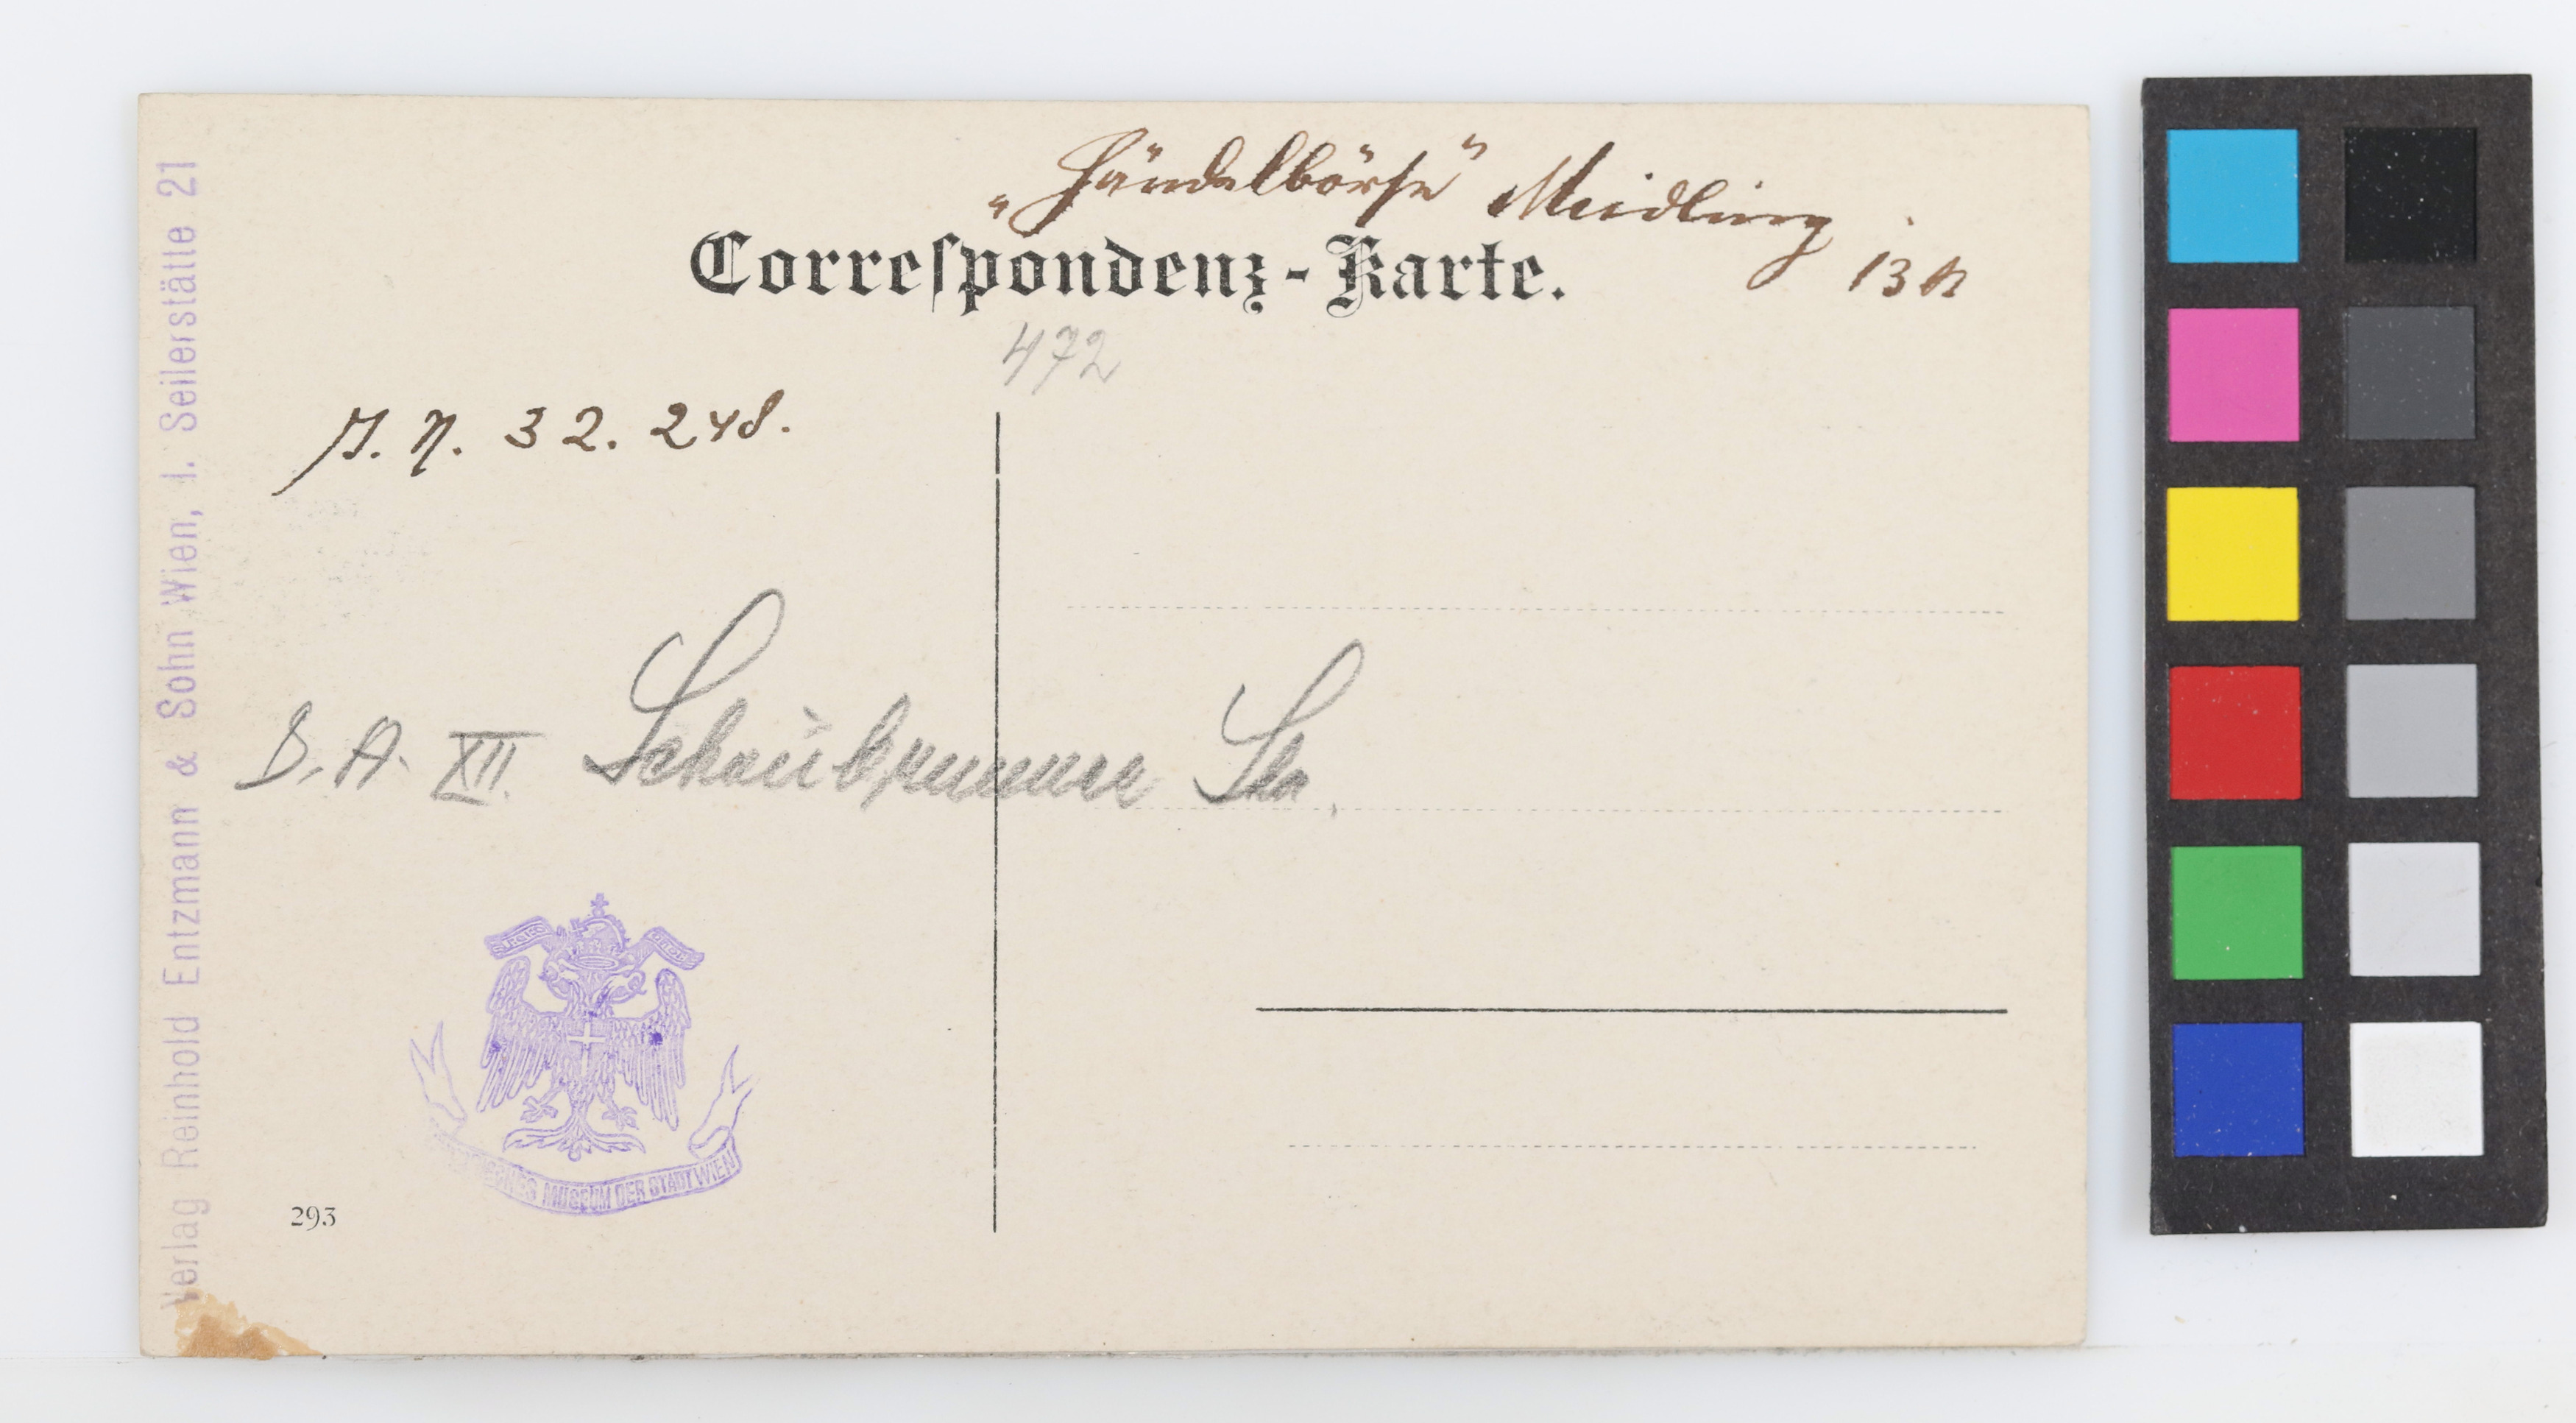 „Händelbörse“ Meidling
13 h
Correſpondenz-Karte.
472
J. N. 32. 248.
B. A. XII. Str.
MUSEUM DER STADT WIEN
293
Verlag Reinhold Entzmann & Sohn Wien, I. Seilerstätte 21